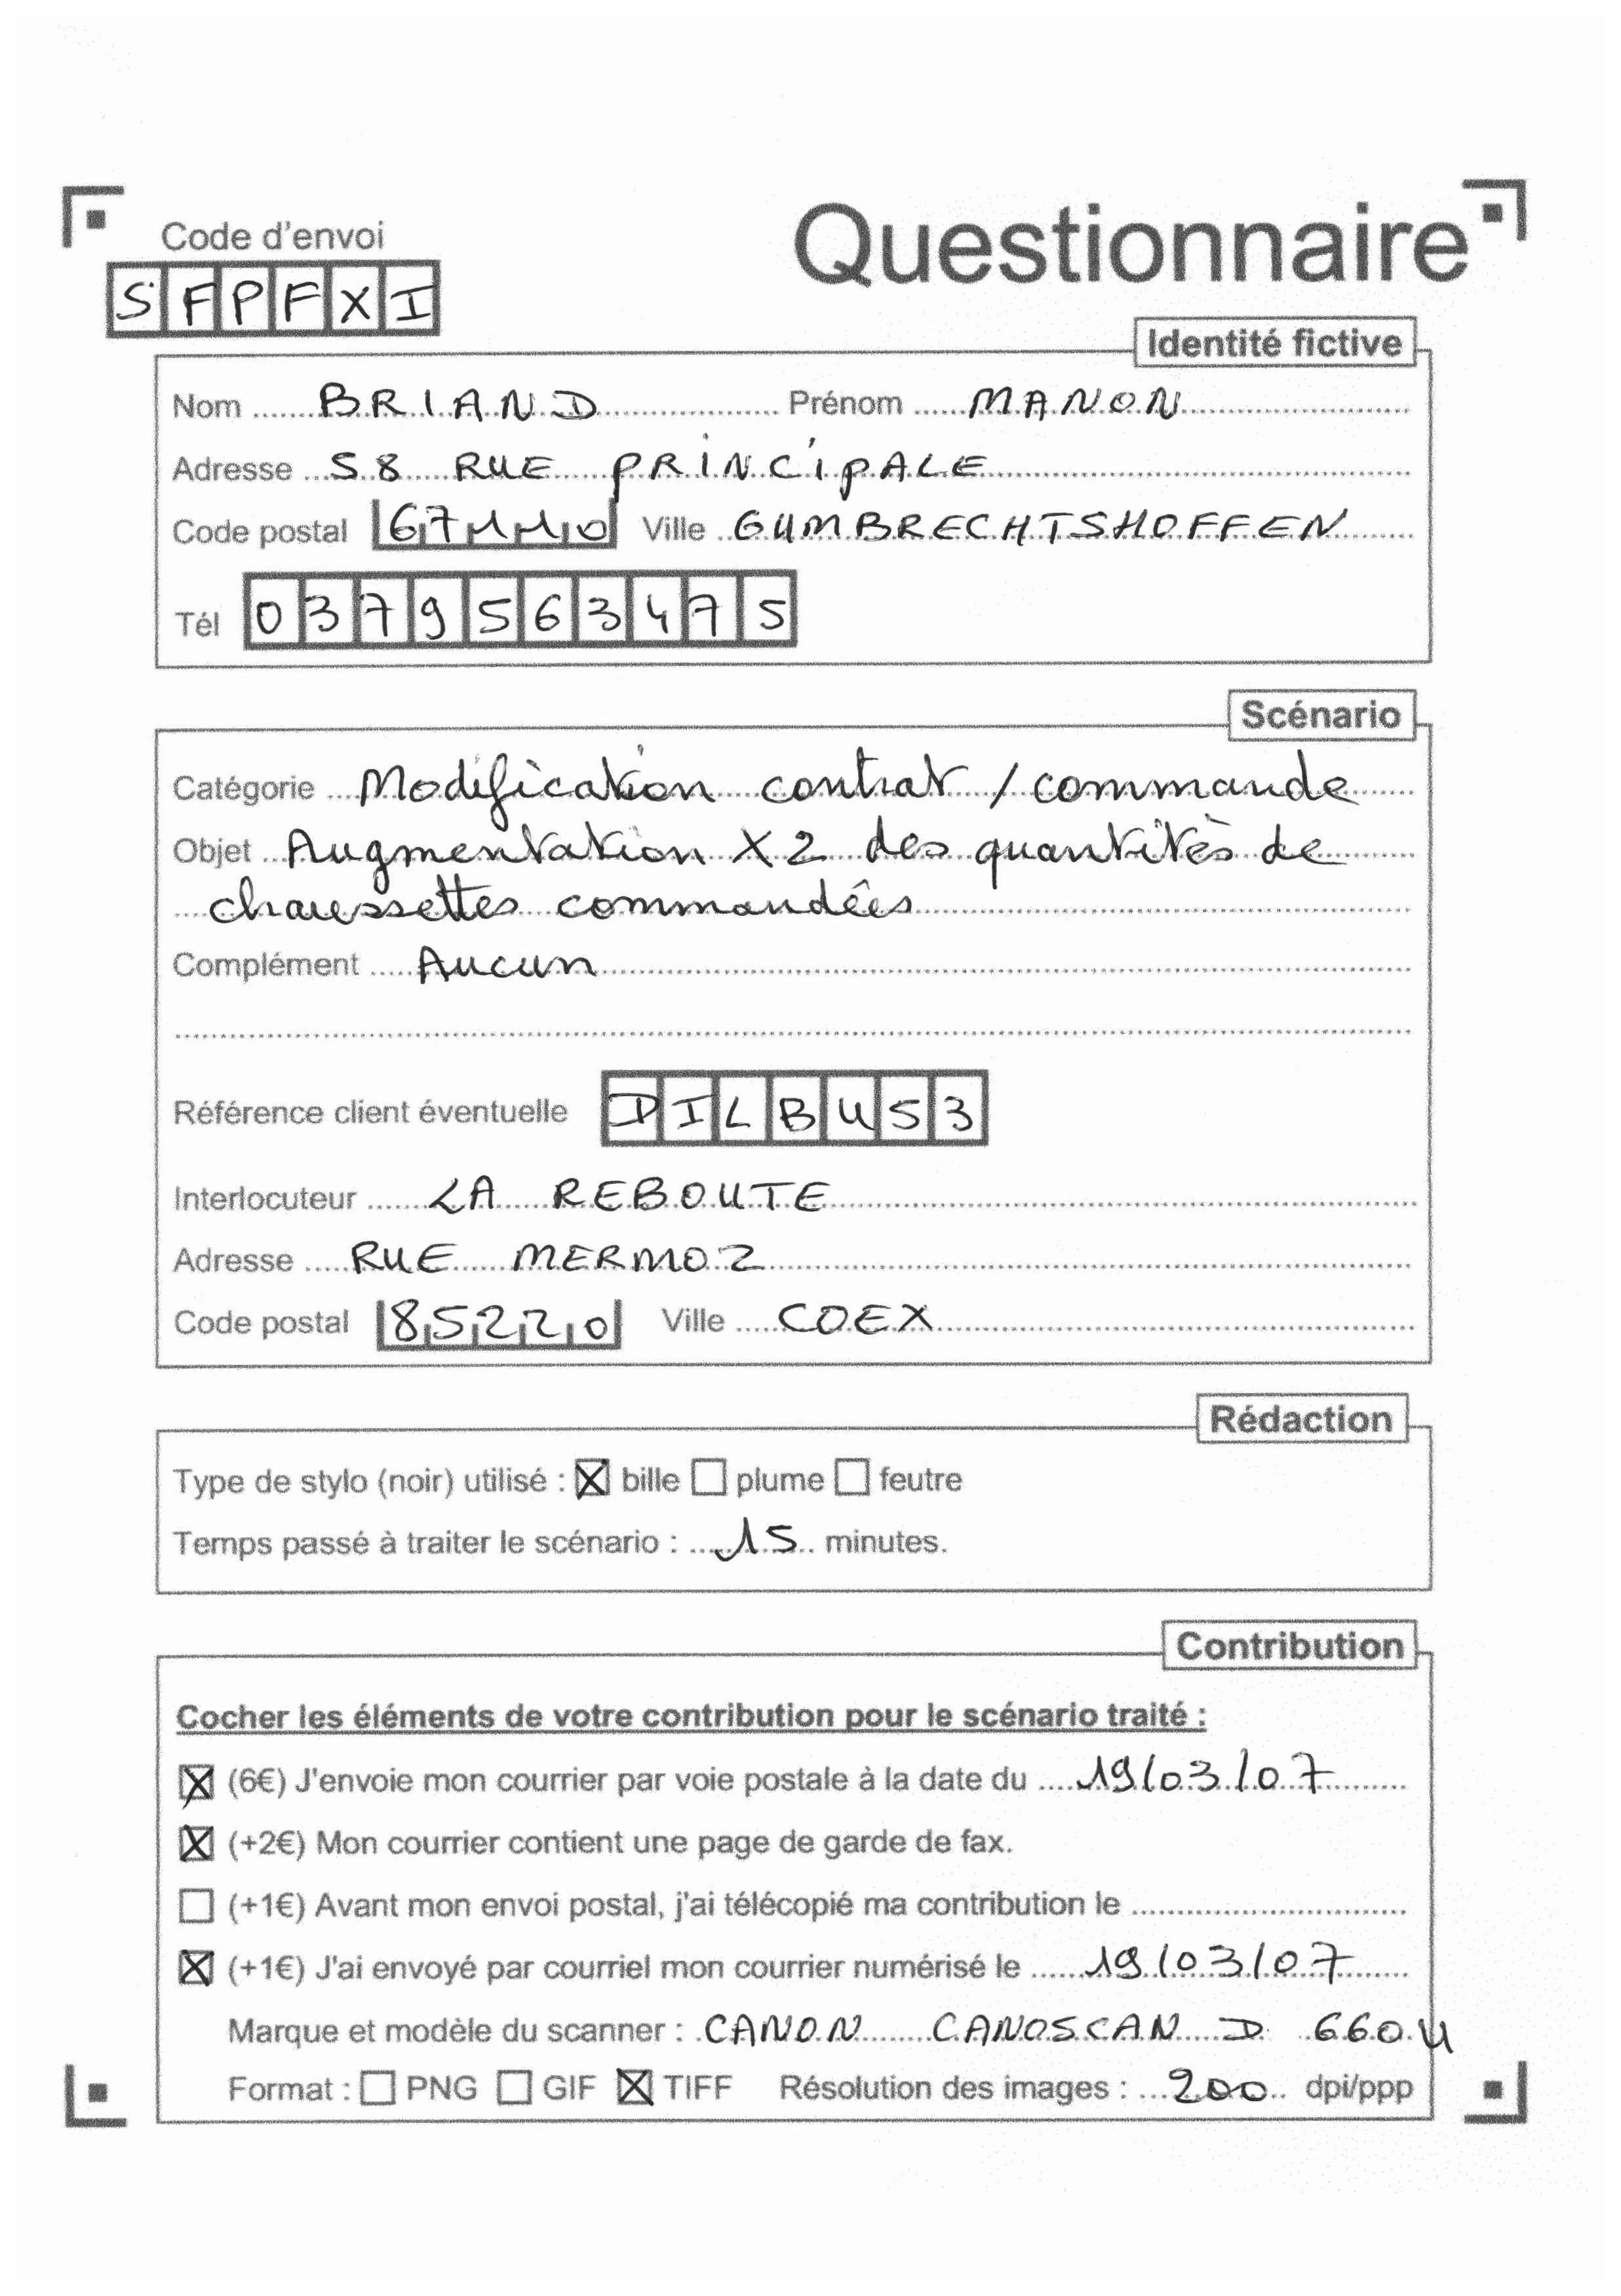 Code d'envoi
Questionnaire
SFPFXI
Identité fictive
Nom BRIAND Prénom MANON
Adresse 58 RUE PRINCIPALE
Code postal 67110 Ville GUMBRECHTSHOFFEN
Tél 0379563475
Scénario
Catégorie Modification contrat / commande
Objet Augmentation X2 des quantités de
chaussettes commandées
Complément Aucun
Référence client éventuelle DILBU53
Interlocuteur LA REBOUTE
Adresse RUE MERMOZ
Code postal 85220 Ville COEX
Rédaction
Type de stylo (noir) utilisé : ☒ bille ☐ plume ☐ feutre
Temps passé à traiter le scénario : 15 minutes.
Contribution
Cocher les éléments de votre contribution pour le scénario traité :
☒ (6€) J'envoie mon courrier par voie postale à la date du 19/03/07
☒ (+2€) Mon courrier contient une page de garde de fax.
☐ (+1€) Avant mon envoi postal, j'ai télécopié ma contribution le
☒ (+1€) J'ai envoyé par courriel mon courrier numérisé le 19/03/07
Marque et modèle du scanner : CANON CANOSCAN D 660U
Format : ☐ PNG ☐ GIF ☒ TIFF Résolution des images : 200 dpi/ppp